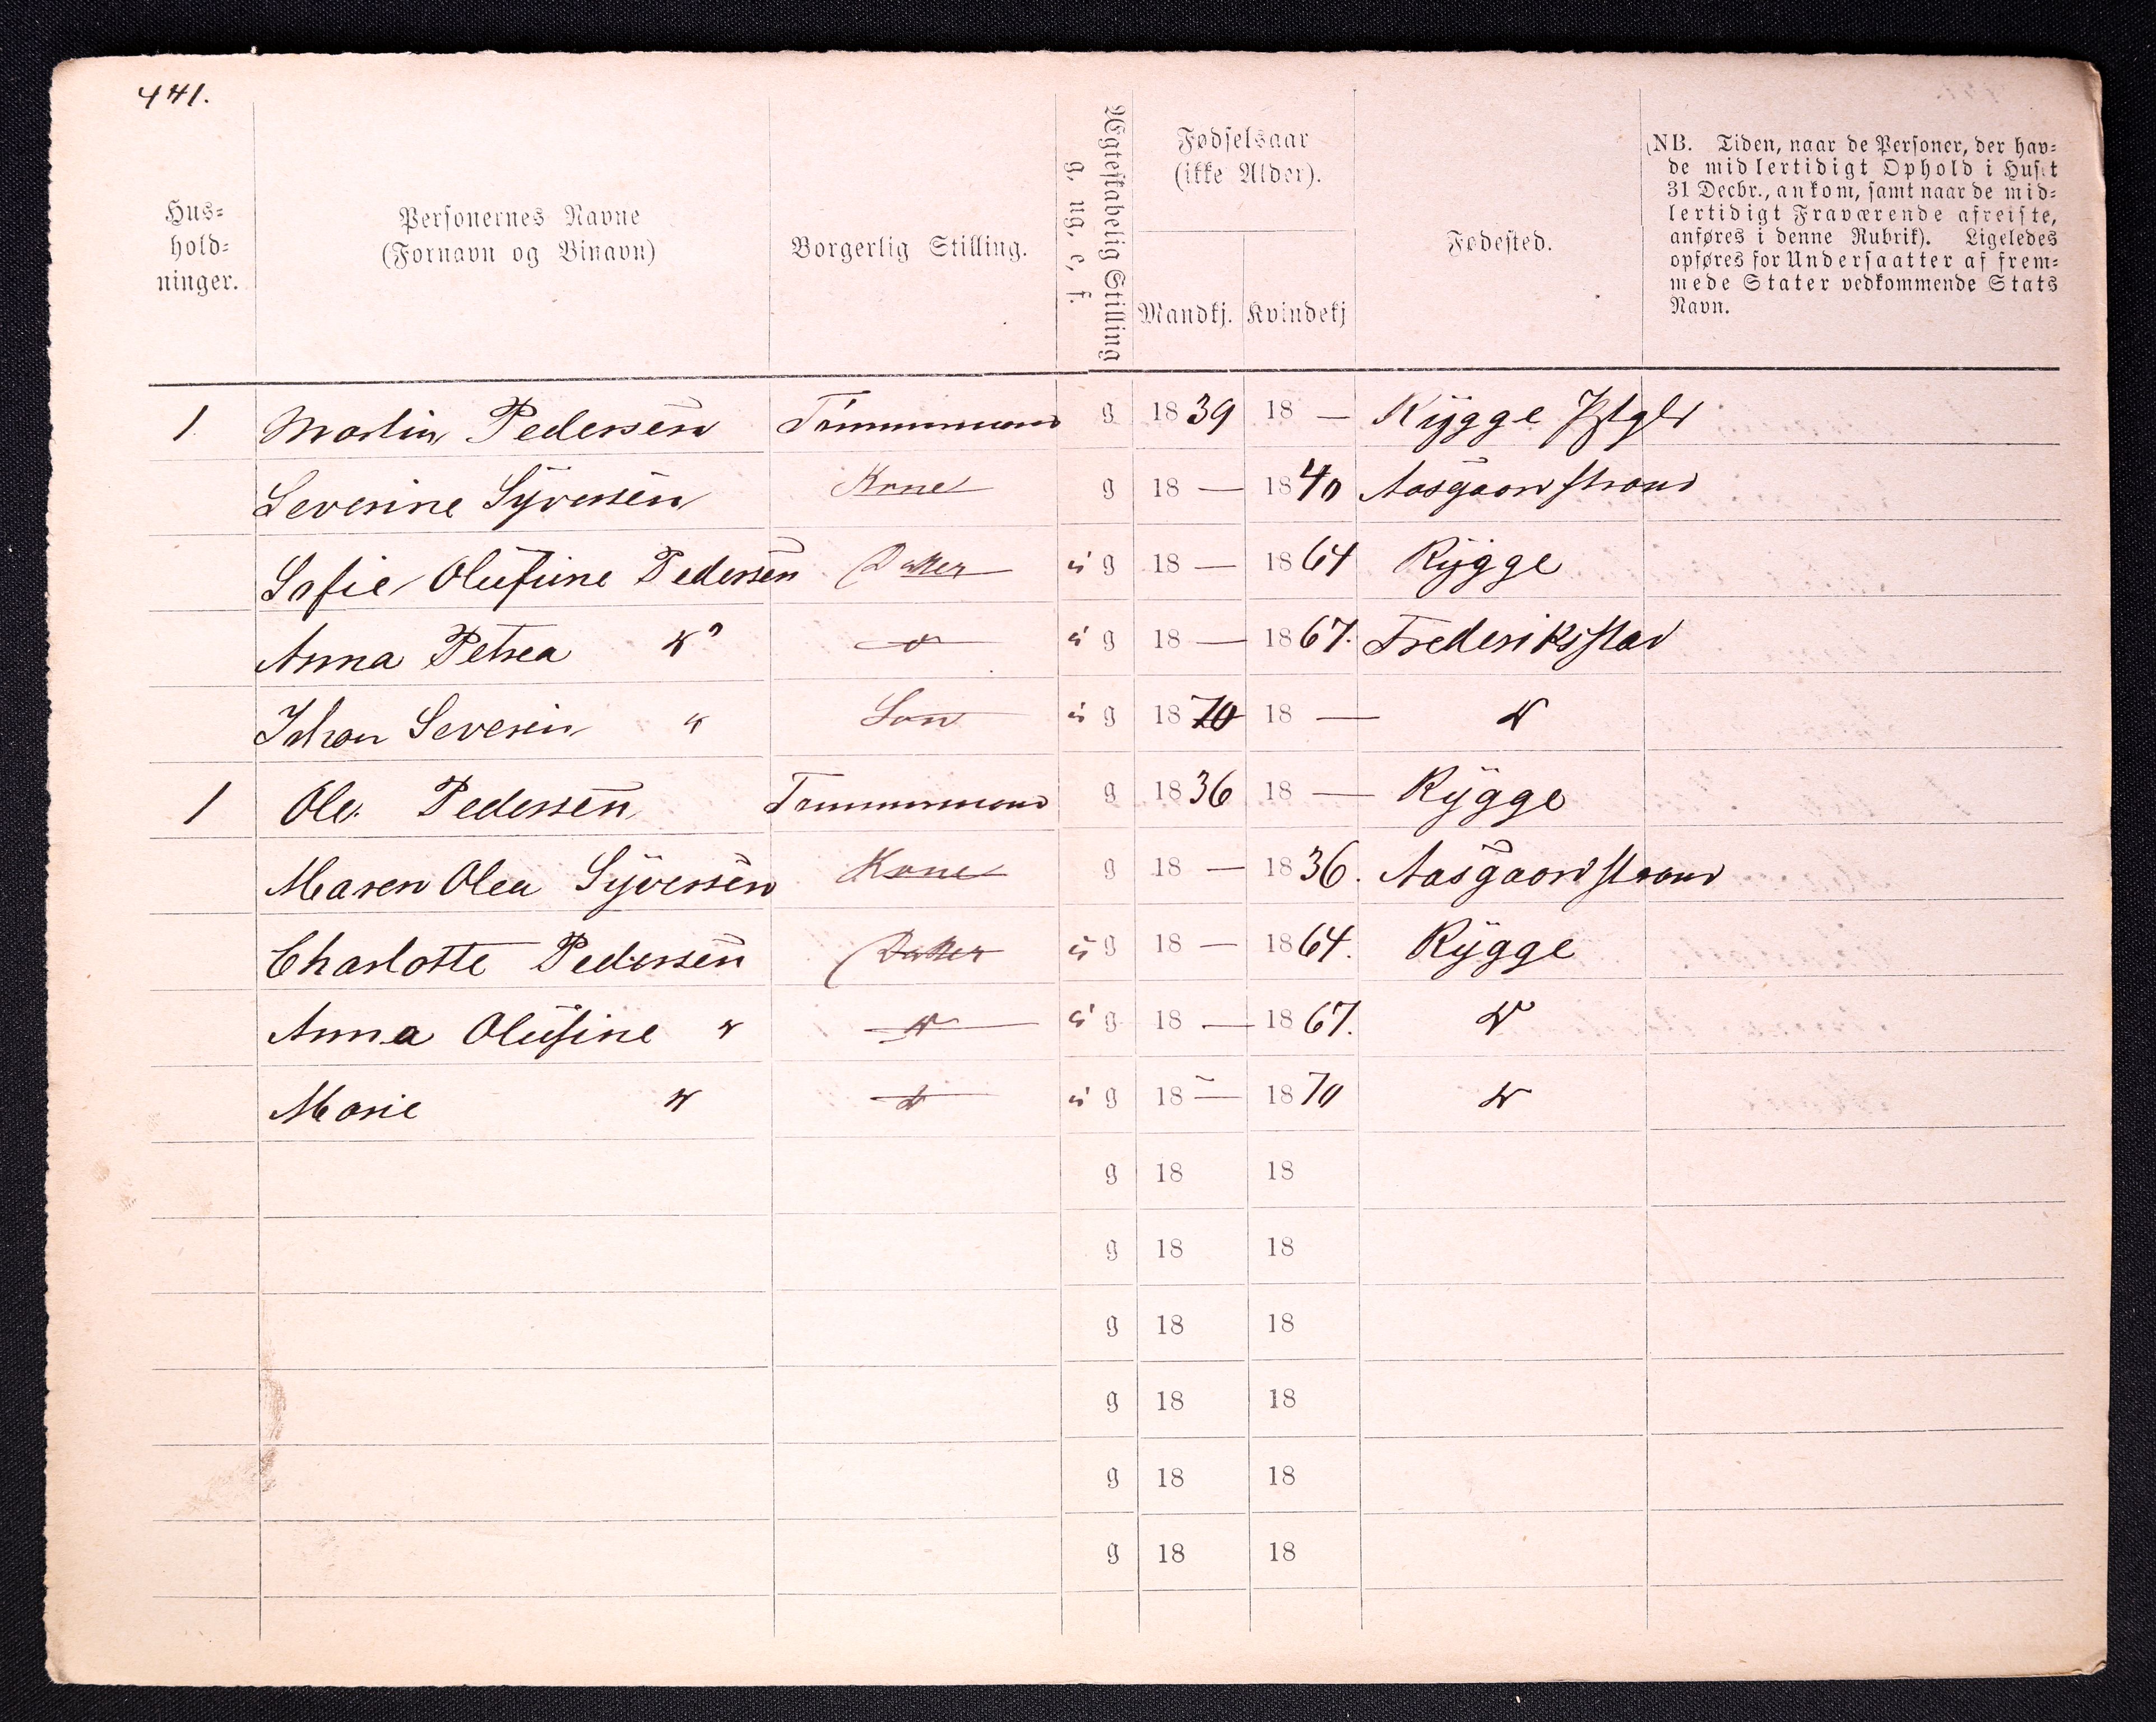 441.
Hus-
hold-
ninger.
Personernes Navne
(Fornavn og Binavn)
Borgerlig Stilling.
Ægteskabelig Stilling
g, ug, e, f.
Fødselsaar
(ikke Alder).
Mandkj. Kvindekj
Fødested.
(NB. Tiden, naar de Personer, der hav-
de midlertidigt Ophold i Huset
31 Decbr., ankom, samt naar de mid-
lertidigt Fraværende afreiste,
anføres i denne Rubrik). Ligeledes
opføres for Undersaatter af frem-
mede Stater vedkommende Stats
Navn.
1 Martin Pedersen Tømmermand g 1839 18 — Rygge
Severine Syversen Kone g 18 — 1840 Aasgaardstrand
Sofie Olufine Pedersen Datter ug 18 — 1864 Rygge
Anna Petrea do do ug 18 — 1867. Frederiksstad
Johan Severin " Søn ug 1870 18 — do
1 Ole Pedersen Tømmermand g 1836 18 — Rygge
Maren Olea Syversen Kone g 18 — 1836. Aasgaardstrand
Charlotte Pedersen Datter ug 18 — 1864. Rygge
Anna Olufine do do ug 18 — 1867. do
Marie do do ug 18 — 1870 do
g 18 18
g 18 18
g 18 18
g 18 18
g 18 18
g 18 18